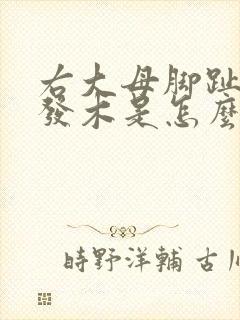 右大母脚趾
發木是怎麼
時野洋輔 古川